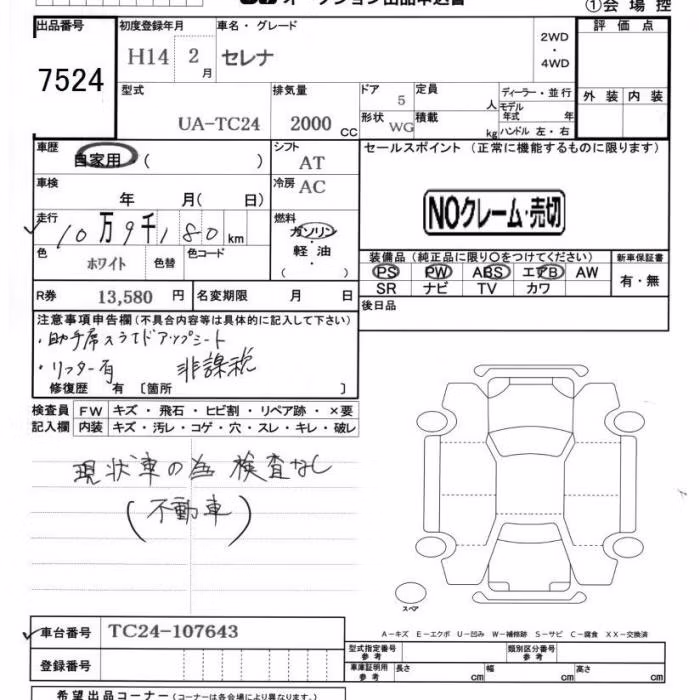 オークション出品申込書
①会場控
出品番号 初度登録年月 車名・グレード 評価点
7524 H14 2月 セレナ 2WD・4WD
型式 排気量 ドア 定員 ディーラー・並行 外装 内装
UA-TC24 2000CC 5 人 モデル年式 年
形状 WG 積載 kg ハンドル 左・右
車歴 自家用・( ) シフト AT セールスポイント(正常に機能するものに限ります)
車検 年 月( 日) 冷房 AC
NOクレーム・売切
走行 10万9千180km 燃料 ガソリン・軽油・( )
色 ホワイト 色替 色コード
装備品(純正品に限り○をつけてください) 新車保証書
PS PW ABS エアB AW 有・無
SR ナビ TV カワ
R券 13,580円 名変期限 月 日 後日品
注意事項申告欄(不具合内容等は具体的に記入して下さい)
・助手席スライドアップシート
・リフター有 非課税
修復歴 有〔箇所 〕
検査員 FW キズ・飛石・ヒビ割・リペア跡・×要
記入欄 内装 キズ・汚レ・コゲ・穴・スレ・キレ・破レ
現状車の為 検査なし
(不動車)
スペア
A-キズ E-エクボ U-凹み W-補修跡 S-サビ C-腐食 XX-交換済
車台番号 TC24-107643
型式指定番号参考 類別区分番号参考
登録番号 車庫証明用参考 長さ cm 幅 cm 高さ cm
希望出品コーナー(コーナーは各会場により異なります。)